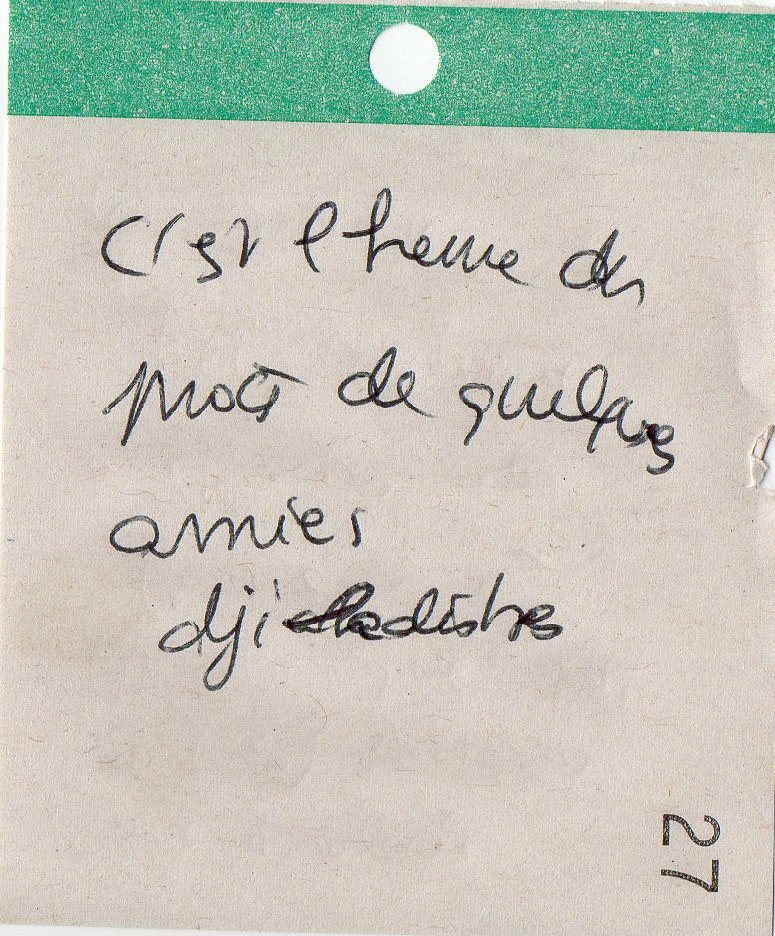 C'est l'heure du
procès de quelques
amies
djihadistes
27